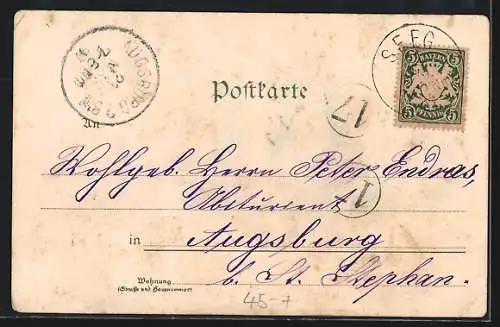 AUGSBURG
SEEG
BAYERN
5 5
PFENNIG
Postkarte
17
An
Wohlgeb. Herrn Peter Endras,
Abiturient
1
in Augsburg
b. St. Stephan.
Wohnung
(Straße und Hausnummer)
45-7